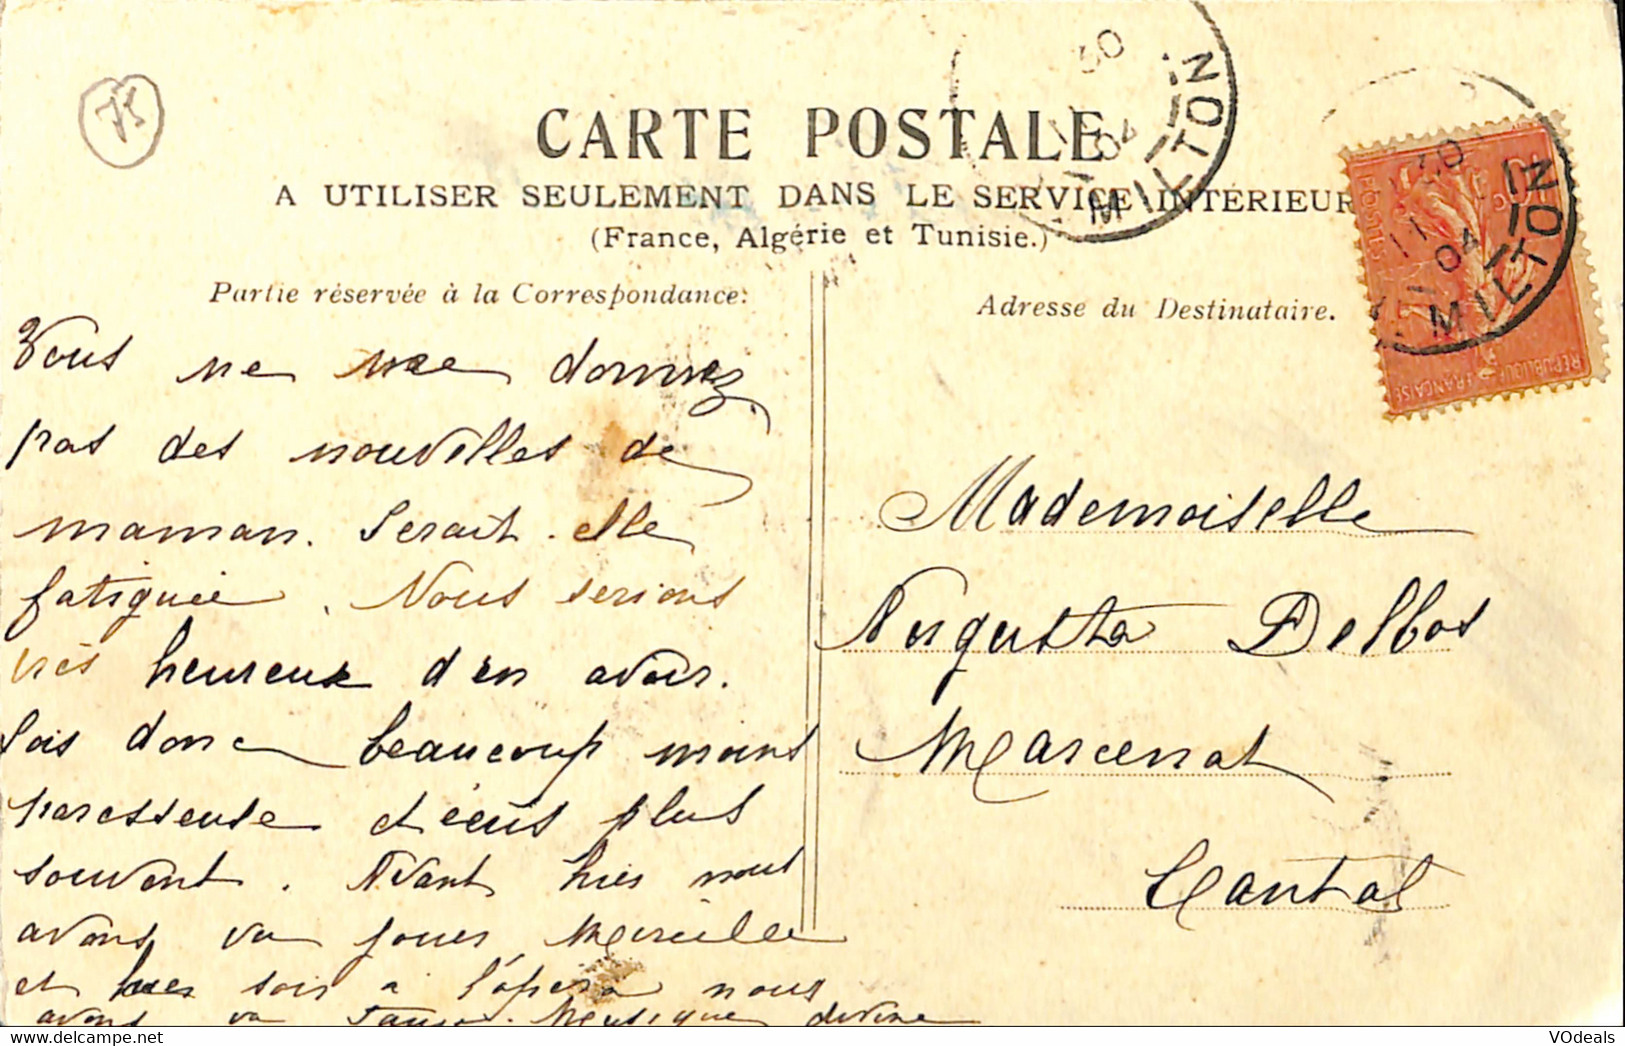 75
CARTE POSTALE
A UTILISER SEULEMENT DANS LE SERVICE INTÉRIEUR
(France, Algérie et Tunisie.)
Partie réservée à la Correspondance:
Adresse du Destinataire.
Vous ne me donnez
pas des nouvelles de
maman. Serait-elle
fatiguée. Nous serions
très heureux d'en avoir.
Sois donc beaucoup moins
paresseuse et écris plus
souvent. Avant hier nous
avons vu jouer Mireille
et hier soir à l'opéra nous
avons vu Musique divine
Mademoiselle
Augusta Delbos
Marcenat
Cantal
MILTON
11
04
MILTON
30
04
10c
POSTES
REPUBLIQUE FRANÇAISE
VOdeals